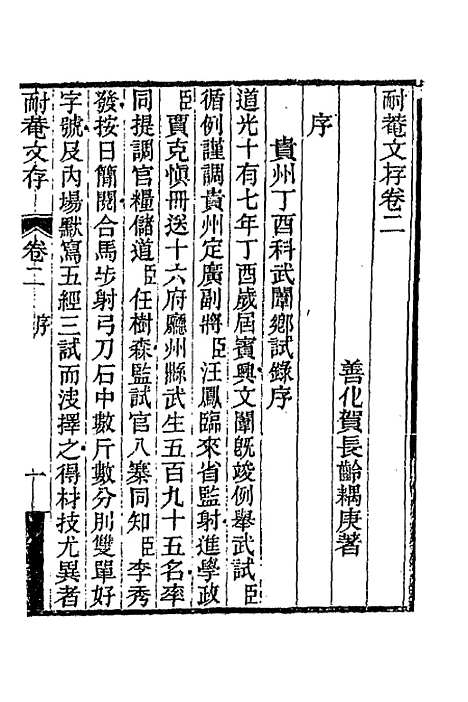 耐菴文存卷二
善化賀長齡耦庚著
序
貴州丁酉科武闈鄉試錄序
道光十有七年丁酉歲屆賓興文闈既竣例舉武試臣
循例謹調貴州定廣副將臣汪鳳臨來省監射進學政
臣賈克慎冊送十六府廳州縣武生五百九十五名率
同提調官糧儲道臣任樹森監試官八寨同知臣李秀
發按日簡閱合馬步射弓刀石中數斤數分別雙單好
字號及內場默寫五經三試而浚擇之得材技尤異者
耐菴文存
卷二
序
一